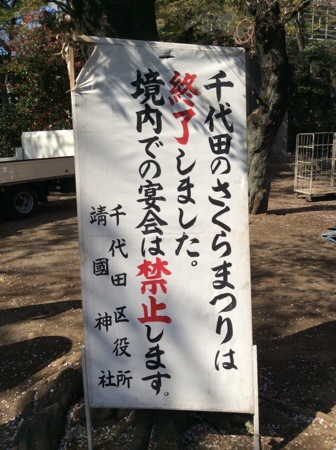 千代田のさくらまつりは
終了しました。
境内での宴会は禁止します。
千代田区役所
靖國神社